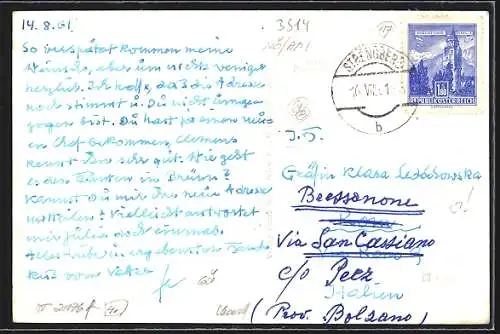 14.8.61
3514
So verspätet kommen meine
Wünsche, aber um nichts weniger
herzlich. Ich hoffe, daß die Adresse
noch stimmt u. Du nicht umge-
zogen bist. Du hast ja einen neu-
en Chef bekommen, Clemens
kennt ihn sehr gut. Wie geht
es den Tanten in Brünn?
Kannst Du mir Ihre neue Adresse
mitteilen? Vielleicht antwortet
mir Julia doch einmal.
Alles Liebe in ergebenstem Hand-
kuß vom Vetter
STRENGBERG
b
REPUBLIK ÖSTERREICH
Gräfin Klara Ledóchowska
Bressanone
Via San Cassiano
c/o Perz
Italien
(Prov. Bolzano)